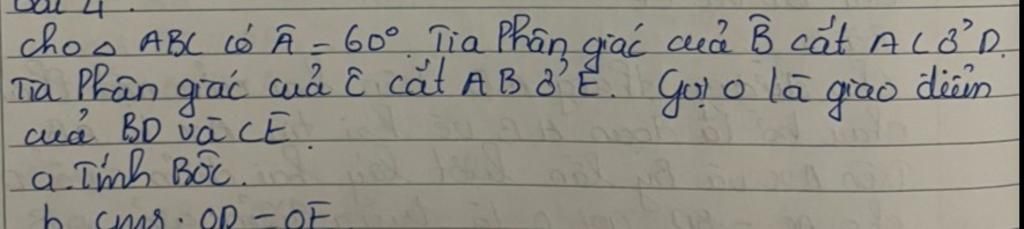 Bài 4.
Cho △ ABC có Â = 60°. Tia Phân giác của B̂ cắt AC ở D.
Tia Phân giác của Ĉ cắt AB ở E. Gọi O là giao điểm
của BD và CE.
a. Tính BÔC.
b. CMR. OD = OE